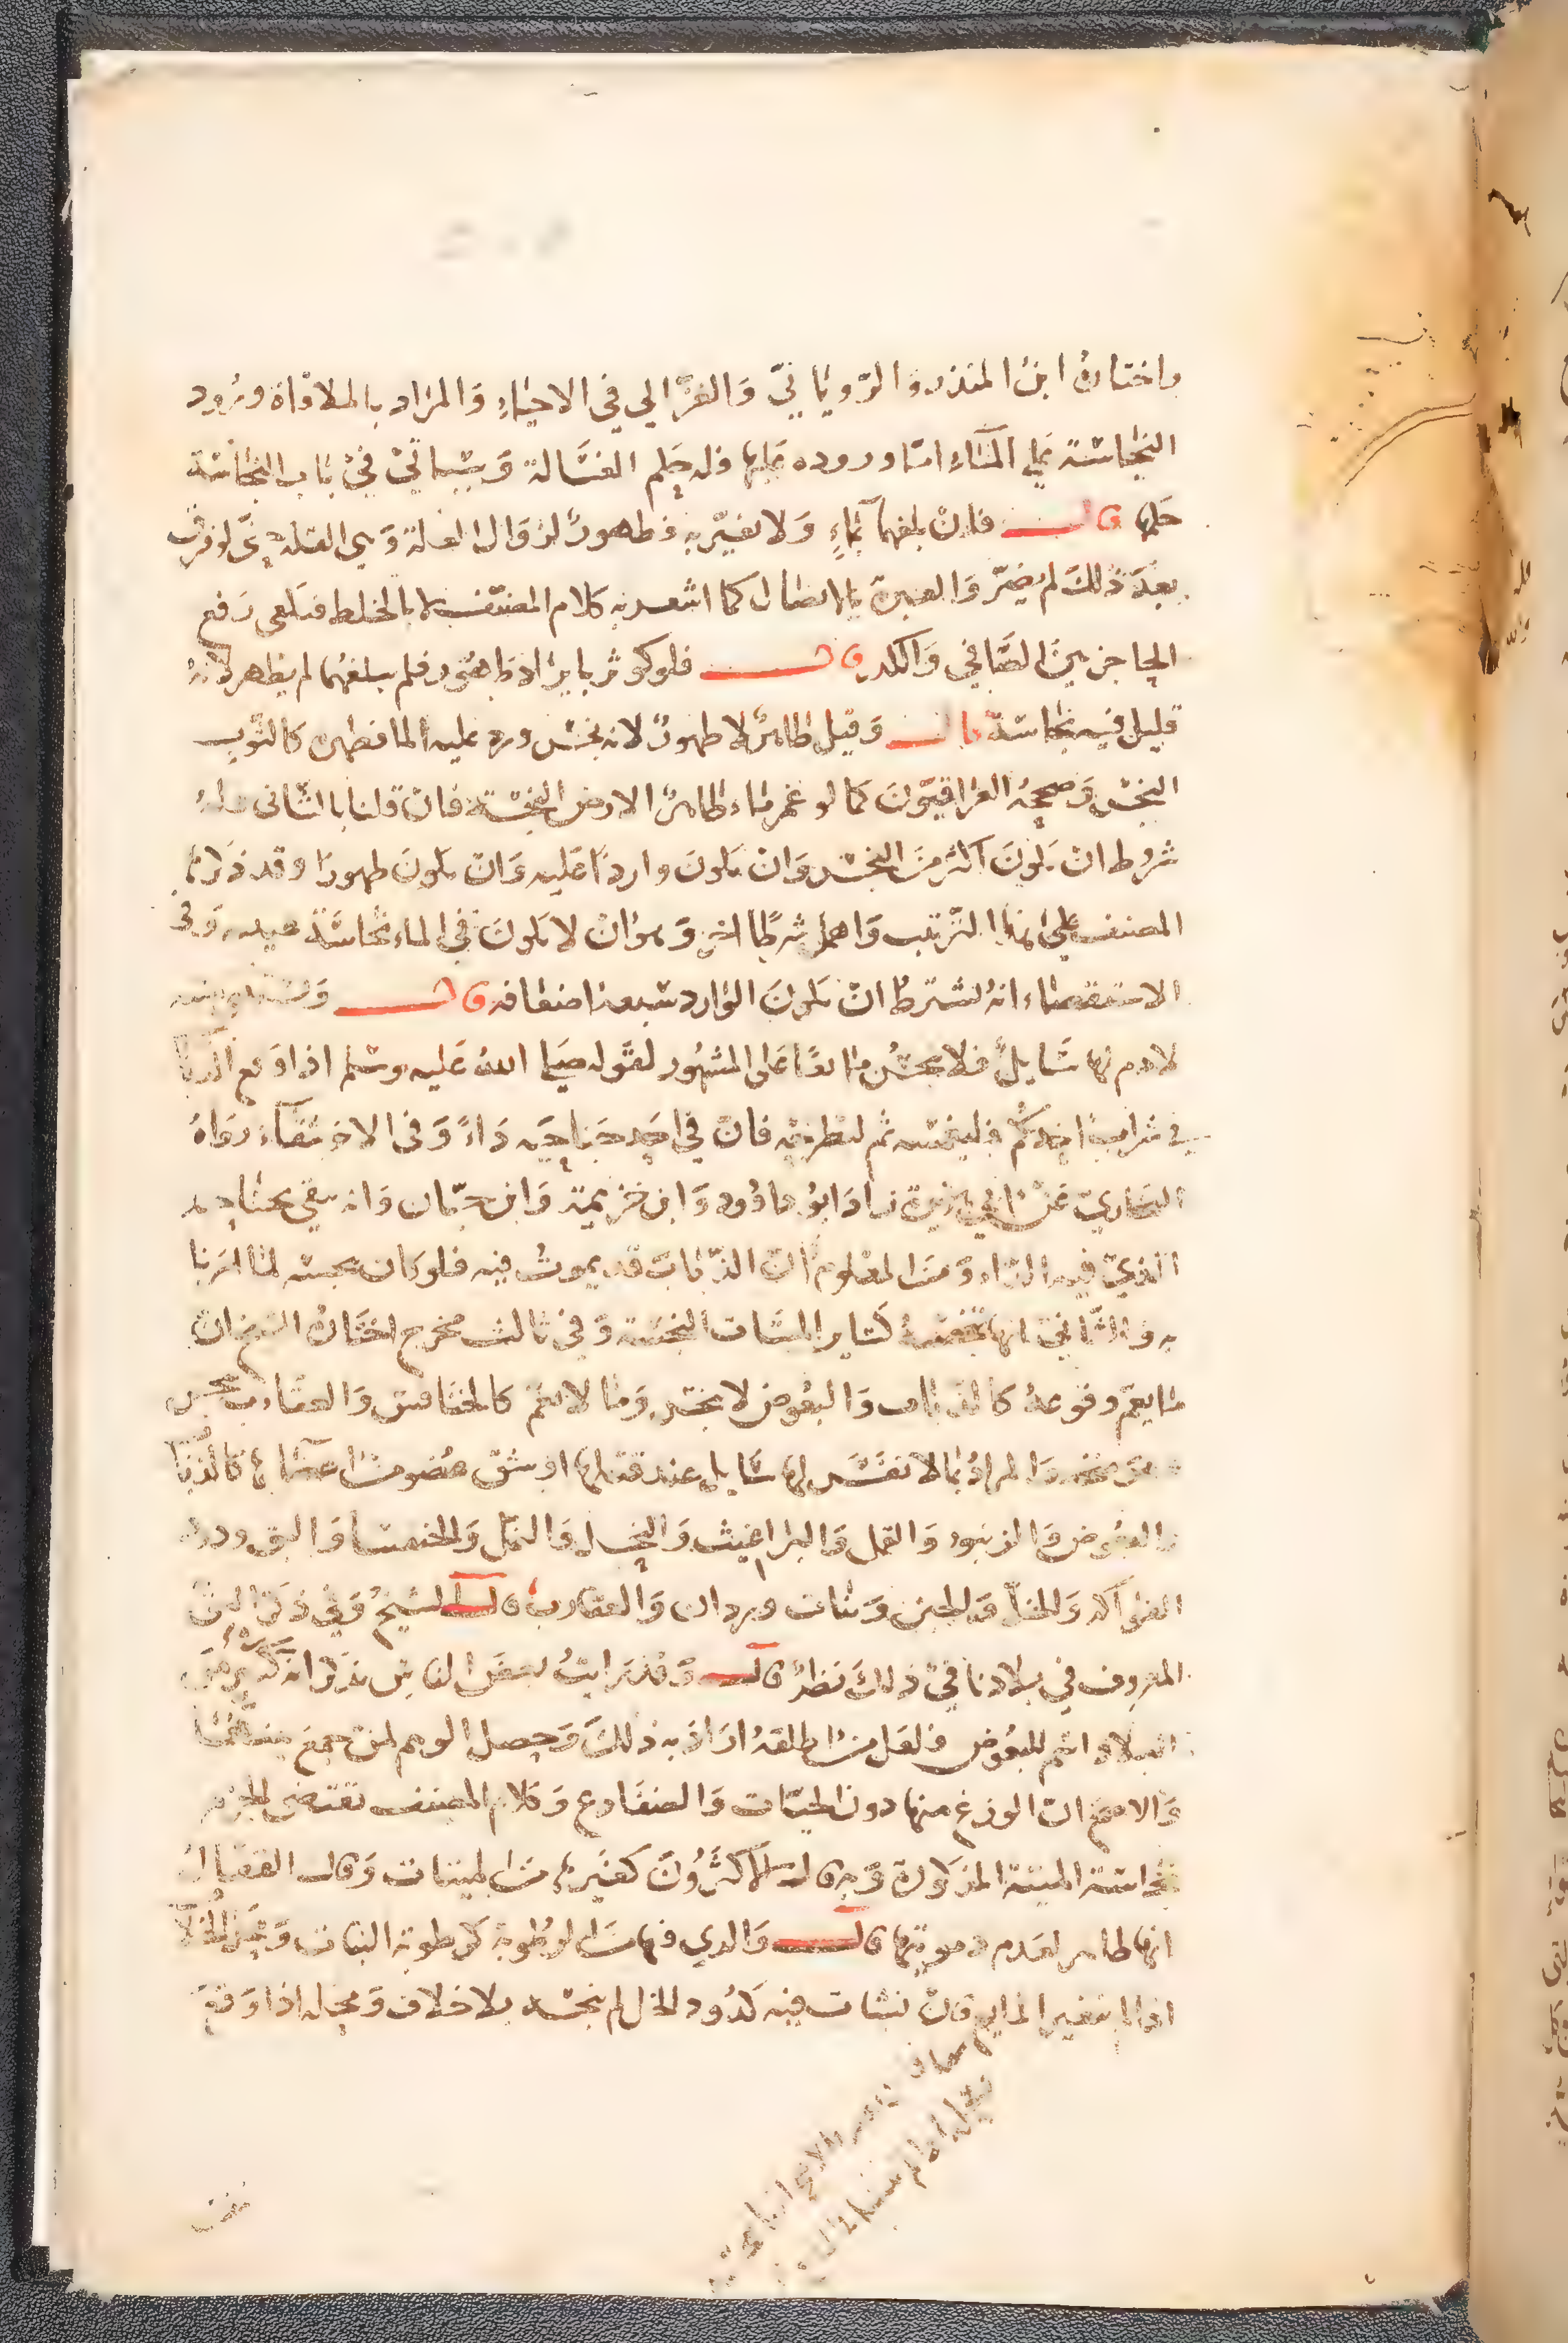 واختاره ابن المنذر والروياني والغزالي في الاحياء والمراد بالملاقاة ورود
النجاسة على الماء اما وروده عليها فله حكم الغسالة وسياتي في باب النجاسة
حكمها قال فان بلغهما بماء ولا تغير به فطهور لزوال العلة وهي القلة حتى لو فرق
بعد ذلك لم يضر والعبرة بالاتصال كما اشعر به كلام المصنف لا بالخلط فيكفي رفع
الحاجز بين الصافي والكدر قال فلو كوثر بايراد طهور فلم يبلغهما لم يطهر لانه
قليل فيه نجاسة قال وقيل طاهر لا طهور لانه نجس ورد عليه الماء فطهره كالثوب
النجس وصححه العراقيون كما لو غمر ماء طاهر الارض النجسة فان قلنا بالثاني فله
شروط ان يكون اكثر من النجس وان يكون واردا عليه وان يكون طهورا وقد ذكرها
المصنف على هذا الترتيب واهمل شرطا اخر وهو ان لا يكون في الماء نجاسة وفي
الاستقصاء انه يشترط ان يكون الوارد سبعة اضعافه قال ويستثنى ميتة
لا دم لها سايل فلا تنجس مائعا على المشهور لقوله صلى الله عليه وسلم اذا وقع الذباب
في شراب احدكم فليغمسه ثم لينزعه فان في احد جناحيه داء وفي الاخر شفاء رواه
البخاري عن ابي هريرة زاد ابو داوود وابن خزيمة وابن حبان وانه يتقي بجناحه
الذي فيه الداء ومن المعلوم ان الذباب قد يموت فيه فلو كان ينجسه لما امرنا
به والثاني انها تنجسه كساير الميتات النجسة وفي ثالث مخرج اختاره ان
ما يعم وقوعه كالذباب والبعوض لا ينجس وما لا يعم كالخنافس والعقارب ينجس
والمراد بما لا نفس لها سايل عند قتلها او شق عضو من اعضائها كالذباب
والبعوض والزنبور والقمل والبراغيث والنحل والنمل والخنفسا والبق ودود
الفواكه والخل والجبن وبنات وردان والعقارب قال الشيخ وفي ذكر البق
المعروف في بلادنا في ذلك نظر قال وقد رايت بعض الناس يذكر انه في كثير من
البلاد اسم للبعوض فلعل من اطلقه اراد به ذلك وحصل الوهم لمن جمع بينهما
والاصح ان الوزغ منها دون الحيات والضفادع وكلام المصنف يقتضي الجزم
بنجاسة الميتة المذكورة وبه قال الاكثرون كغيرها من الميتات وقال القفال
انها طاهر لعدم دمويتها قال والذي فيها من الرطوبة كرطوبة النبات ومحل الخلاف
اذا لم يتغير المايع فان نشات فيه كدود الخل لم ينجسه بلا خلاف ومحله اذا وقع